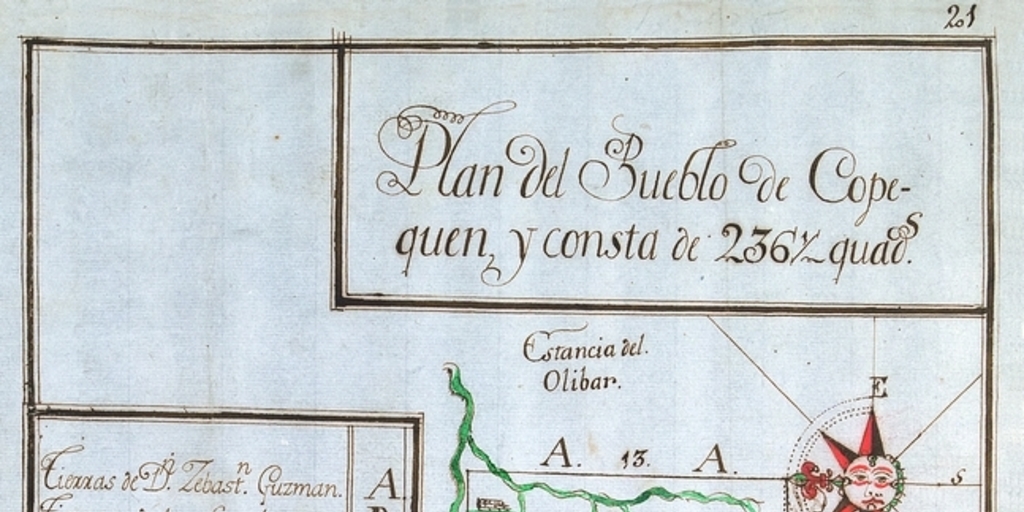 21
Plan del Pueblo de Cope-
quen, y consta de 236½ quads.
Estancia del.
Olibar.
E
A. 13. A.
S
Tierras de Dn. Zebastn. Guzman. A